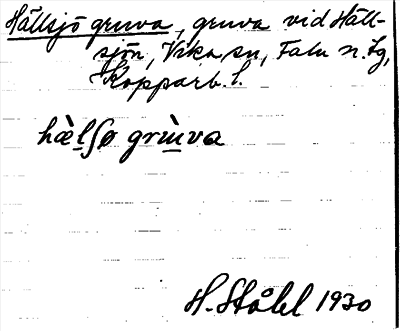 Hällsjö gruva, gruva vid Häll-
sjön, Vika sn, Falu n. tg,
Kopparb. l.
hæ̀l̠ʃø grùva
H. Ståhl 1930